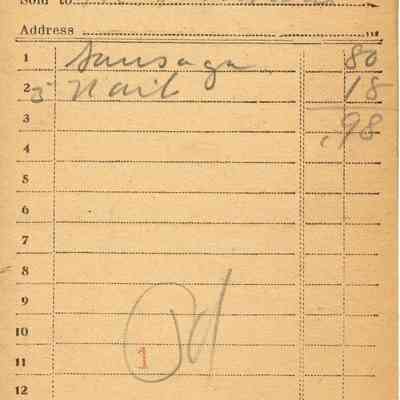 Sold to
Address
1 Sausage 80
2 5 Nails 18
3 .98
4
5
6
7
8
9
10
11
12
Pd
1